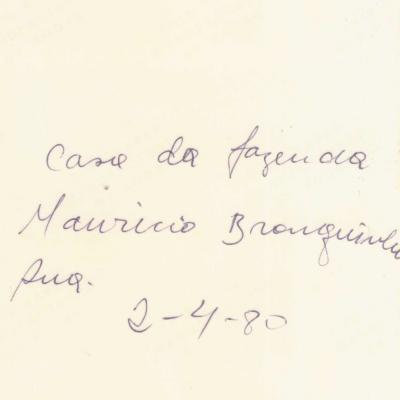 Casa da fazenda
Mauricio Bronquinho
Ana.
2-4-80